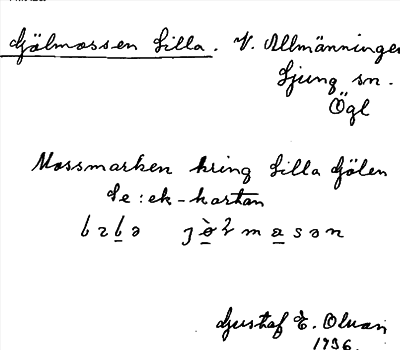 Gölmossen Lilla. V. Allmänningen
Ljung sn.
Ögl
Mossmarken kring Lilla Gölen
Se: ek-kartan
Gustaf E. Olson
1936.